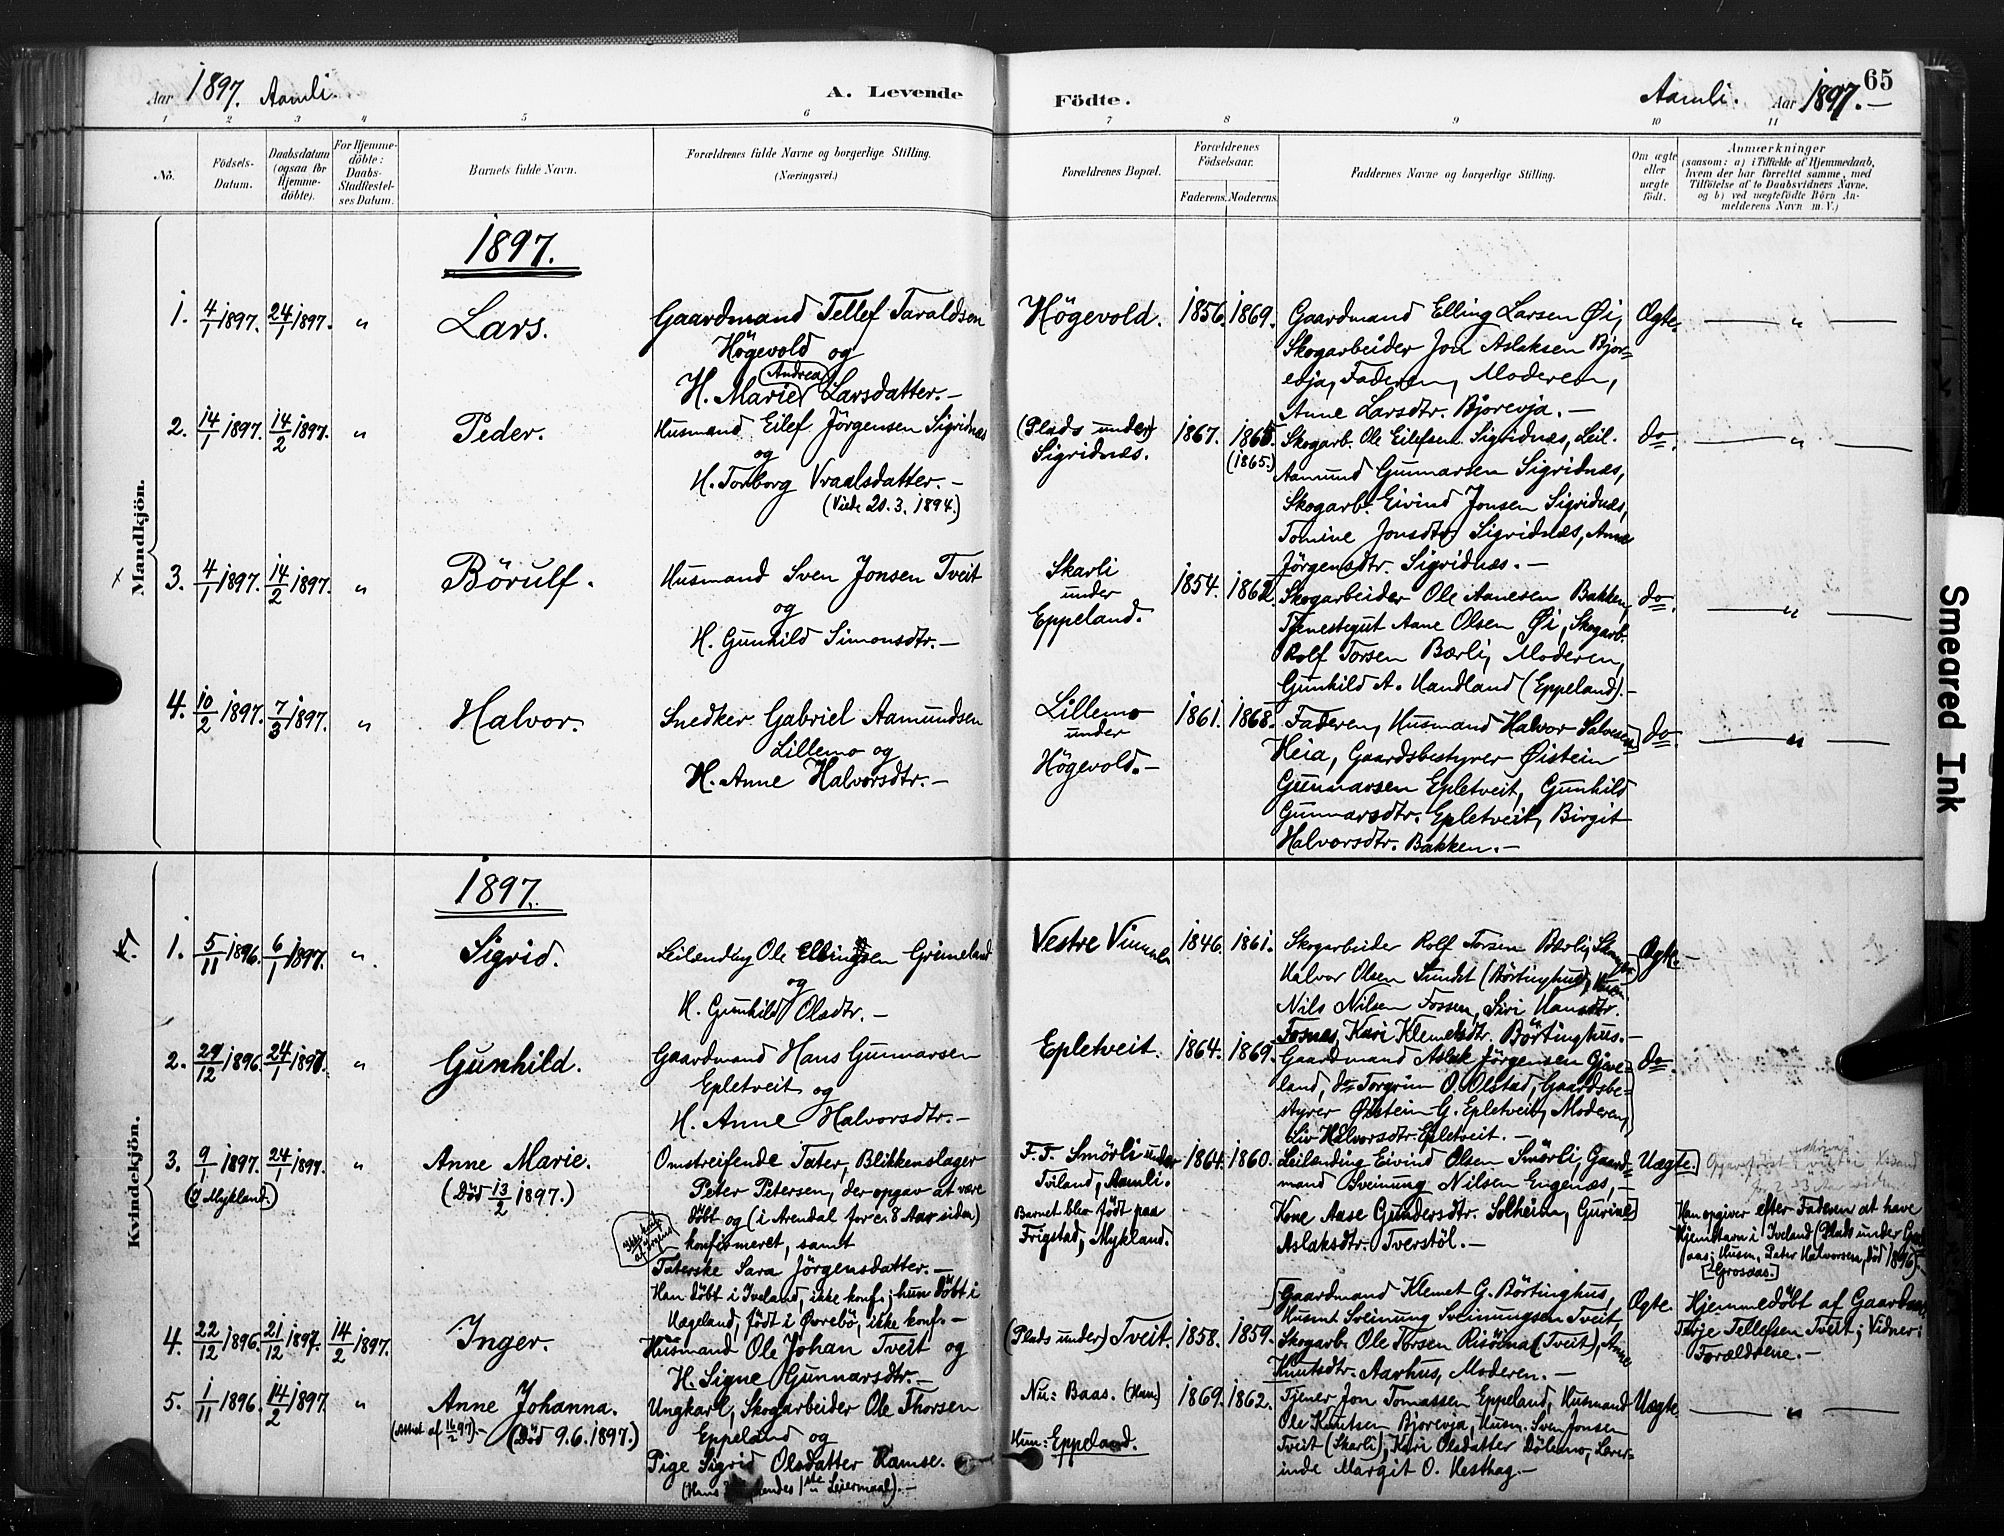 Aar 1897. Aamli.
A. Levende
Födte.
Aamli. Aar 1897.— 65
1 2 3 4 5 6 7 8 9 10 11
No.
Födsels-Datum.
Daabsdatum (ogsaa for Hjemmedöbte).
For Hjemmedöbte: Daabs-Stadfæstelses Datum.
Barnets fulde Navn.
Forældrenes fulde Navne og borgerlige Stilling. (Næringsvei.)
Forældrenes Bopæl.
Forældrenes Födselsaar.
Faderens. Moderens.
Faddernes Navne og borgerlige Stilling.
Om ægte eller uægte födt.
Anmærkninger
(saasom: a) i Tilfælde af Hjemmedaab, hvem der har forrettet samme, med Tilföielse af to Daabsvidners Navne, og b) ved uægtefödte Börn Anmelderens Navn m. V.)
Mandkjön.
1897.
1. 4/1 1897. 24/1 1897. „ Lars.
Gaardmand Tellef Taraldsen
Högevold og
H. Marie Andrea Larsdatter.—
Högevold. 1856. 1869.
Gaardmand Elling Larsen Øi,
Skogarbeider Jon Aslaksen Bjor=
evja, Faderen, Moderen,
Anne Larsdtr. Bjorevja.—
Ægte. — „ —
2. 14/1 1897. 14/2 1897. „ Peder.
Husmand Eilef Jörgensen Sigridnæs
og
H. Torborg Vraalsdatter.—
(Viede 20.3.1894.)
(Plads under)
Sigridnæs.
1867. 1865. (1865.)
Skogarb. Ole Eilefsen Sigridnæs, Leil.
Aamund Gunnarsen Sigridnæs,
Skogarb. Eivind Jonsen Sigridnæs,
Tomine Jonsdtr. Sigridnæs, Anne
Jörgensdtr. Sigridnæs.—
do. — „ —
3. 4/1 1897. 14/2 1897. „ Börulf.
Husmand Sven Jonsen Tveit
og
H. Gunhild Simonsdtr.—
Skarli
under
Eppeland.
1854. 1862.
Skogarbeider Ole Aanesen Bakken,
Tjenestegut Aane Olsen Øi, Skogarb.
Rolf Torsen Bærli, Moderen,
Gunhild A. Handland (Eppeland).—
do. — „ —
4. 10/2 1897. 7/3 1897. „ Halvor.
Snedker Gabriel Aamundsen
Lillemo og
H. Anne Halvorsdtr.—
Lillemo
under
Högevold.—
1861. 1868.
Faderen, Husmand Halvor Salvesen
Heia, Gaardsbestyrer Øistein
Gunnarsen Epletveit, Gunhild
Gunnarsdtr. Epletveit, Birgit
Halvorsdtr. Bakken.—
do. — „ —
Kvindekjön.
1897.
1. 5/11 1896. 6/1 1897. „ Sigrid.
Leilending Ole Ellingsen Grimeland
og
H. Gunhild Olsdtr.—
Vestre Vimme
1846. 1861.
Skogarbeider Rolf Torsen Bærli,
Halvor Olsen Sundet (Börtinghus),
Nils Nilsen Fossen, Siri Hansdtr.
Fosnes, Kari Klemetsdtr. Börtinghus.—
Ægte.—
2. 29/12 1896. 24/1 1897. „ Gunhild.
Gaardmand Hans Gunnarsen
Epletveit og
H. Anne Halvorsdtr.—
Epletveit. 1864. 1869.
Gaardmand Aslak Jörgensen Gjøve=
land, do Torgrim O. Olstad, Gaardsbe=
styrer Øistein G. Epletveit, Moderen,
Liv Halvorsdtr. Epletveit.—
do.
3. 9/1 1897. 24/1 1897. „ Anne Marie.
(i Mykland.) (Död 13/2 1897.)
Omstreifende Tater, Blikkenslager
Peter Petersen, der opgav at være
döbt og (i Arendal for c. 8 Aar siden)
konfirmeret, samt
Taterske Sara Jörgensdatter.—
Han döbt i Iveland, ikke konf.; hun döbt i
Hægeland, født i Øvrebö, ikke konf.—
F. F. Smörli under
Tviland, Aamli.
Barnet blev födt paa
Frigstad, Mykland.
1864. 1860.
Leilending Eivind Olsen Smörli, Gaard=
mand Sveinung Nilsen Engenæs,—
Kone Aase Gundersdtr. Solheim, Gurine
Aslaksdtr. Tverstöl.—
Uægte.
Han opgiver efter Faderen at have
Hjemstavn i Iveland (Plads under
Husm. Peter Halvorsen, död 1896).—
[Grosaas.]
4. 22/12 1896. 21/12 1897. 14/2 1897. Inger.
Husmand Ole Johan Tveit og
H. Signe Gunnarsdtr.—
(Plads under) Tveit. 1858. 1859.
Gaardmand Klemet G. Börtinghus,
Husmt Sveinung Sveinungsen Tveit,
Skogarb. Ole Torsen Risöina (Tveit), Anne
Knutsdtr. Aarhus, Moderen.—
Ægte.
Hjemmedöbt af Gaardm.
Terje Tellefsen Tveit; Vidner:
Forældrene.—
5. 1/11 1896. 14/2 1897. „ Anne Johanna.
(Attest af 16/2 97).— (Död 9.6.1897.)
Ungkarl, Skogarbeider Ole Thorsen
Eppeland og
Pige Sigrid Olsdatter Ramse.
Nu: Baas. (Han)
Hun: Eppeland.
1869. 1862.
Tjener Jon Tomassen Eppeland, Husmand
Ole Knutsen Bjorevja, Husm. Sven Jonsen
Tveit (Skarli), Kari Olsdatter Dölemo, Lærer=
inde Margit O. Hesthag.—
Uægte — „ —
Smeared Ink